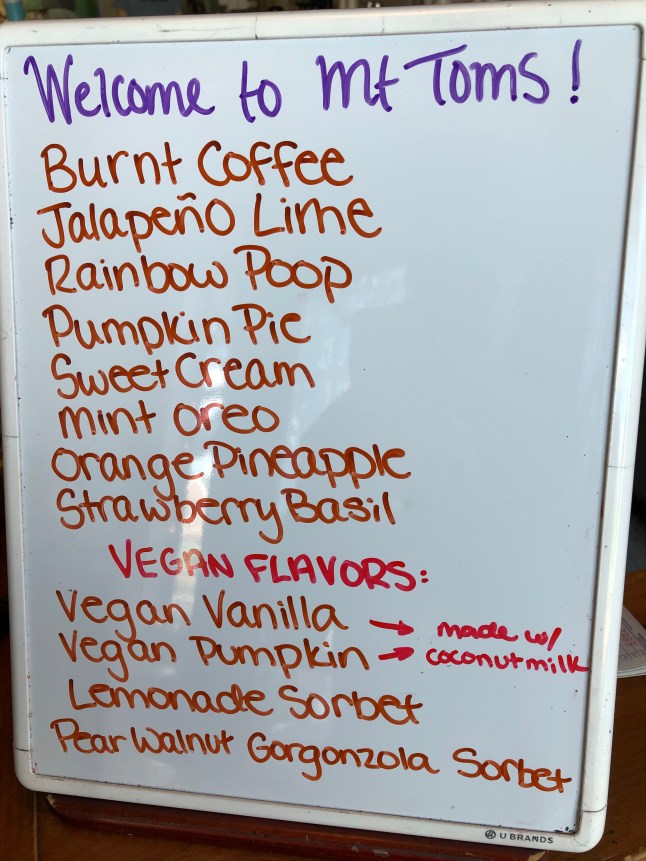 Welcome to Mt Toms!
Burnt Coffee
Jalapeño Lime
Rainbow Poop
Pumpkin Pie
Sweet Cream
Mint Oreo
Orange Pineapple
Strawberry Basil
VEGAN FLAVORS:
Vegan Vanilla → made w/
Vegan Pumpkin → coconutmilk
Lemonade Sorbet
Pear Walnut Gorgonzola Sorbet
U BRANDS